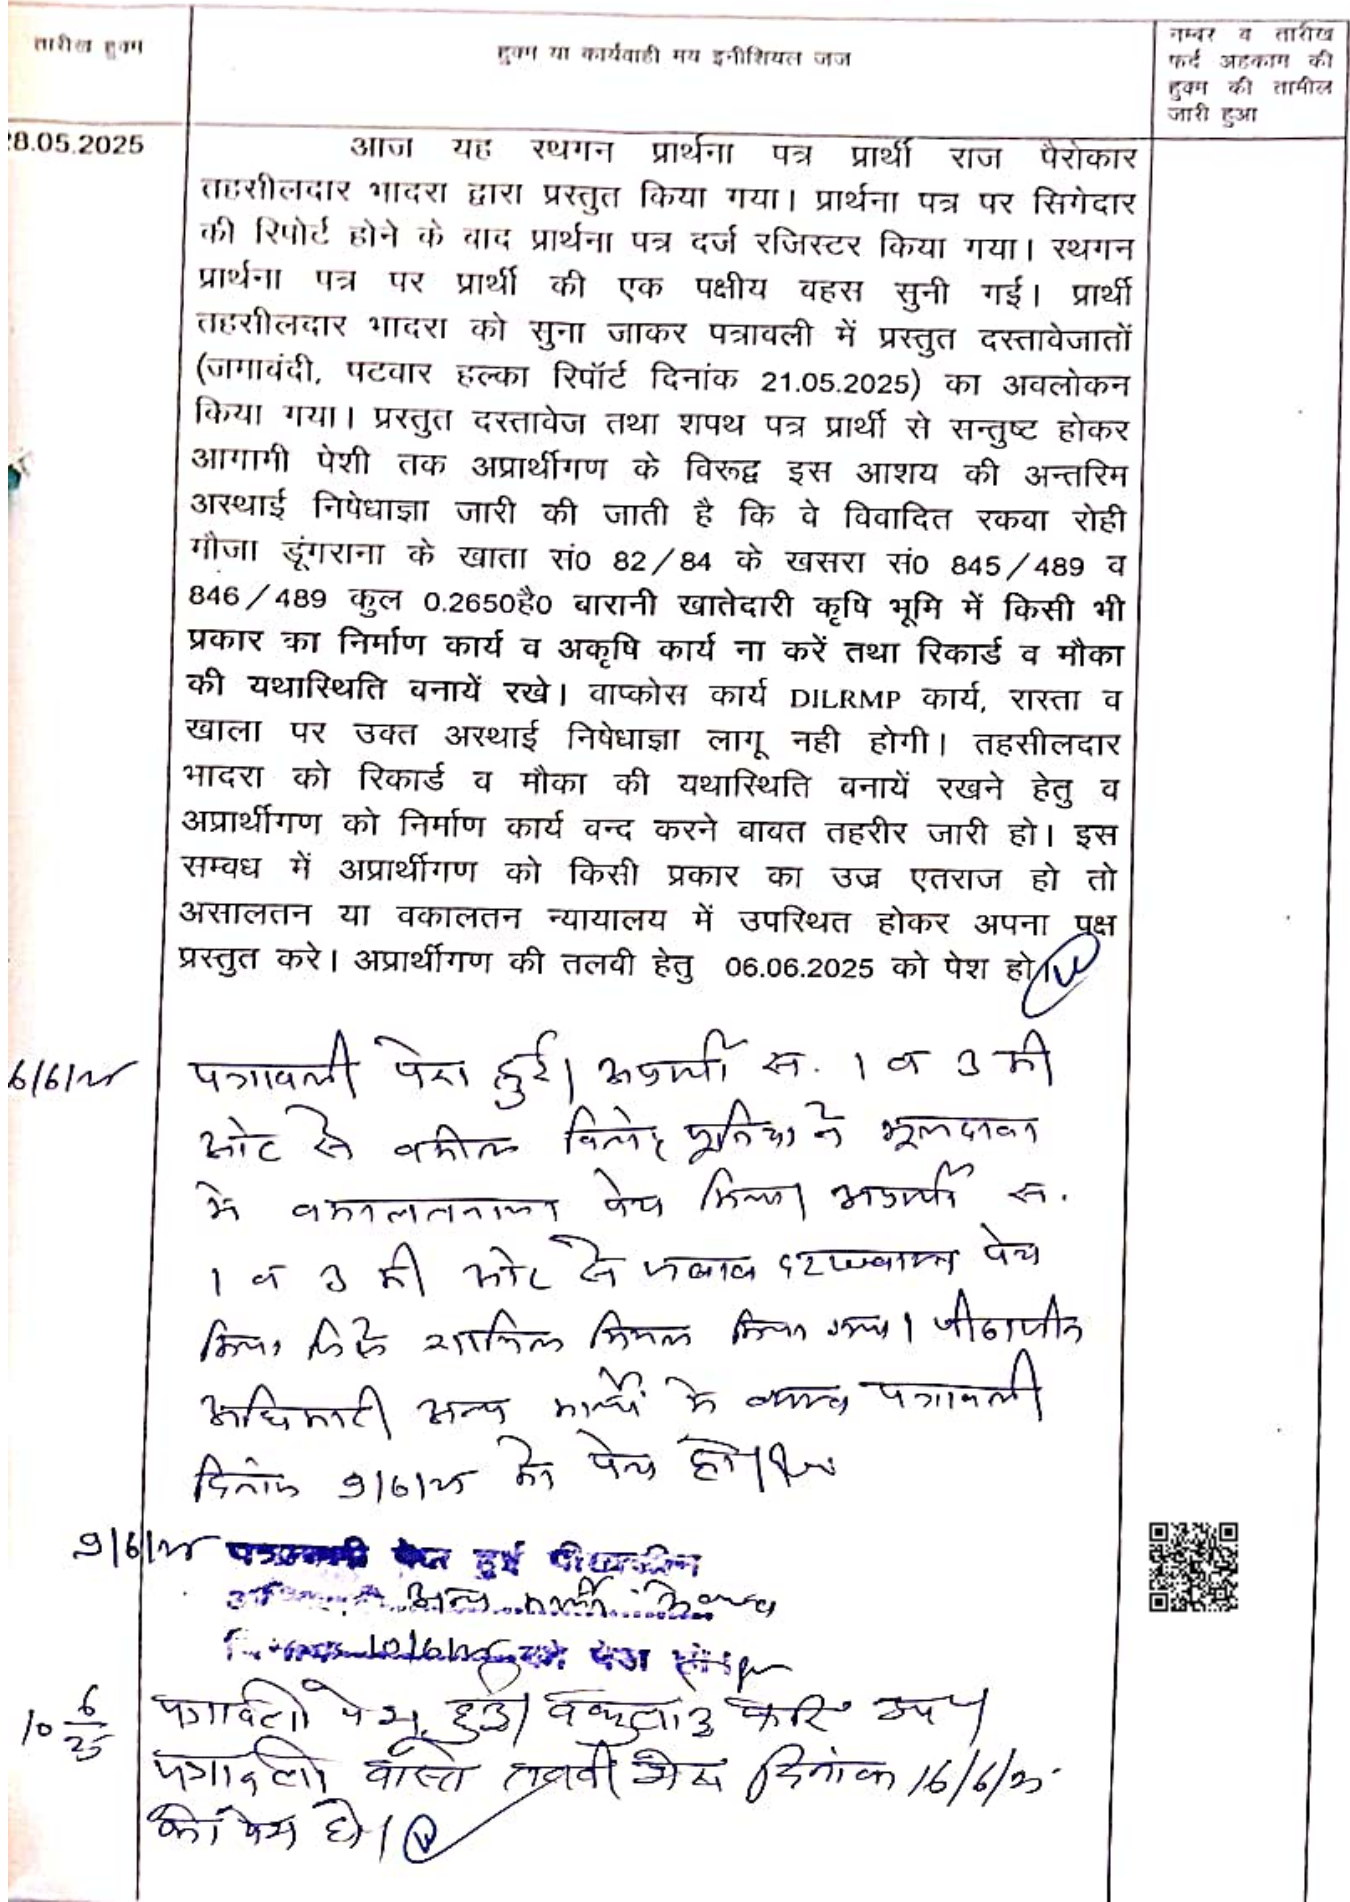 तारीख हुक्म
हुक्म या कार्यवाही मय इनीशियल जज
नम्बर व तारीख
फर्द अहकाम की
हुक्म की तामील
जारी हुआ
8.05.2025
आज यह स्थगन प्रार्थना पत्र प्रार्थी राज पैरोकार
तहसीलदार भादरा द्वारा प्रस्तुत किया गया। प्रार्थना पत्र पर सिगेदार
की रिपोर्ट होने के बाद प्रार्थना पत्र दर्ज रजिस्टर किया गया। स्थगन
प्रार्थना पत्र पर प्रार्थी की एक पक्षीय वहस सुनी गई। प्रार्थी
तहसीलदार भादरा को सुना जाकर पत्रावली में प्रस्तुत दस्तावेजातों
(जमाबंदी, पटवार हल्का रिपॉर्ट दिनांक 21.05.2025) का अवलोकन
किया गया। प्रस्तुत दस्तावेज तथा शपथ पत्र प्रार्थी से सन्तुष्ट होकर
आगामी पेशी तक अप्रार्थीगण के विरूद्व इस आशय की अन्तरिम
अस्थाई निषेधाज्ञा जारी की जाती है कि वे विवादित रकवा रोही
मौजा डूंगराना के खाता सं0 82/84 के खसरा सं0 845/489 व
846/489 कुल 0.2650है0 बारानी खातेदारी कृषि भूमि में किसी भी
प्रकार का निर्माण कार्य व अकृषि कार्य ना करें तथा रिकार्ड व मौका
की यथास्थिति वनायें रखे। वाप्कोस कार्य DILRMP कार्य, रास्ता व
खाला पर उक्त अस्थाई निषेधाज्ञा लागू नही होगी। तहसीलदार
भादरा को रिकार्ड व मौका की यथास्थिति वनायें रखने हेतु व
अप्रार्थीगण को निर्माण कार्य वन्द करने वावत तहरीर जारी हो। इस
सम्वध में अप्रार्थीगण को किसी प्रकार का उज्र एतराज हो तो
असालतन या वकालतन न्यायालय में उपस्थित होकर अपना पक्ष
प्रस्तुत करे। अप्रार्थीगण की तलवी हेतु 06.06.2025 को पेश हो।
6/6/25 पत्रावली पेश हुई। अप्रार्थी स. 1 व 3 की
ओर से वकील पूनिया ने मूलदावा
मे वकालतनामा पेश किया। अप्रार्थी स.
1 व 3 की ओर से जवाब दरख्वास्त पेश
किया जिसे शामिल मिसल किया गया। पीठासीन
अधिकारी अन्य कार्यो मे व्यस्त पत्रावली
दिनांक 9/6/25 को पेश हो।
9/6/25 पत्रावली पेश हुई पीठासीन
अन्य कार्यो मे व्यस्त
10/6/25 को पेश हो।
10 6/25 पत्रावली पेश हुई।
पत्रावली वास्ते तलवी शेष दिनांक 16/6/25
को पेश हो।